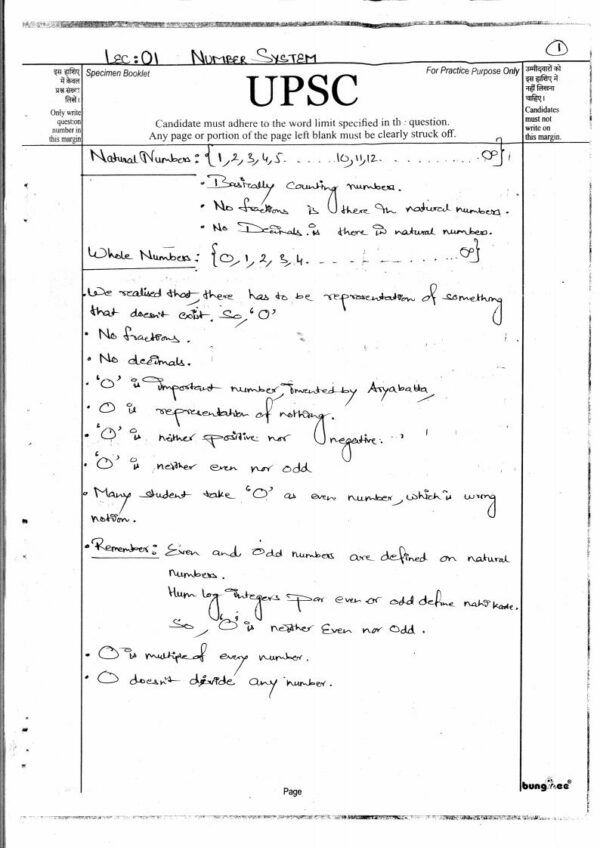 LEC:01 NUMBER SYSTEM
1
इस हाशिए में केवल प्रश्न संख्या लिखें।
Only write question number in this margin
Specimen Booklet
For Practice Purpose Only
UPSC
Candidate must adhere to the word limit specified in th question.
Any page or portion of the page left blank must be clearly struck off.
उम्मीदवारों को इस हाशिए में नहीं लिखना चाहिए।
Candidates must not write on this margin.
Natural Numbers: {1, 2, 3, 4, 5. . . . . . 10, 11, 12. . . . . . . . . . . . . ∞}
• Basically Counting numbers.
• No fractions is there in natural numbers.
• No Decimals is there in natural numbers.
Whole Numbers: {0, 1, 2, 3, 4. . . . . . . . . . . . . . ∞}
• We realised that, there has to be representation of something
that doesn't exist. So, '0'
• No fractions.
• No decimals.
• '0' is important number, invented by Aryabatta
• 0 is representation of nothing.
• '0' is neither positive nor negative.
• '0' is neither even nor odd
• Many student take '0' as even number, which is wrong
notion.
• Remember: Even and Odd numbers are defined on natural
numbers.
Hum log integers par even or odd define nahi karte.
So, '0' is neither Even nor Odd.
• 0 is multiple of every number.
• 0 doesn't divide any number.
Page